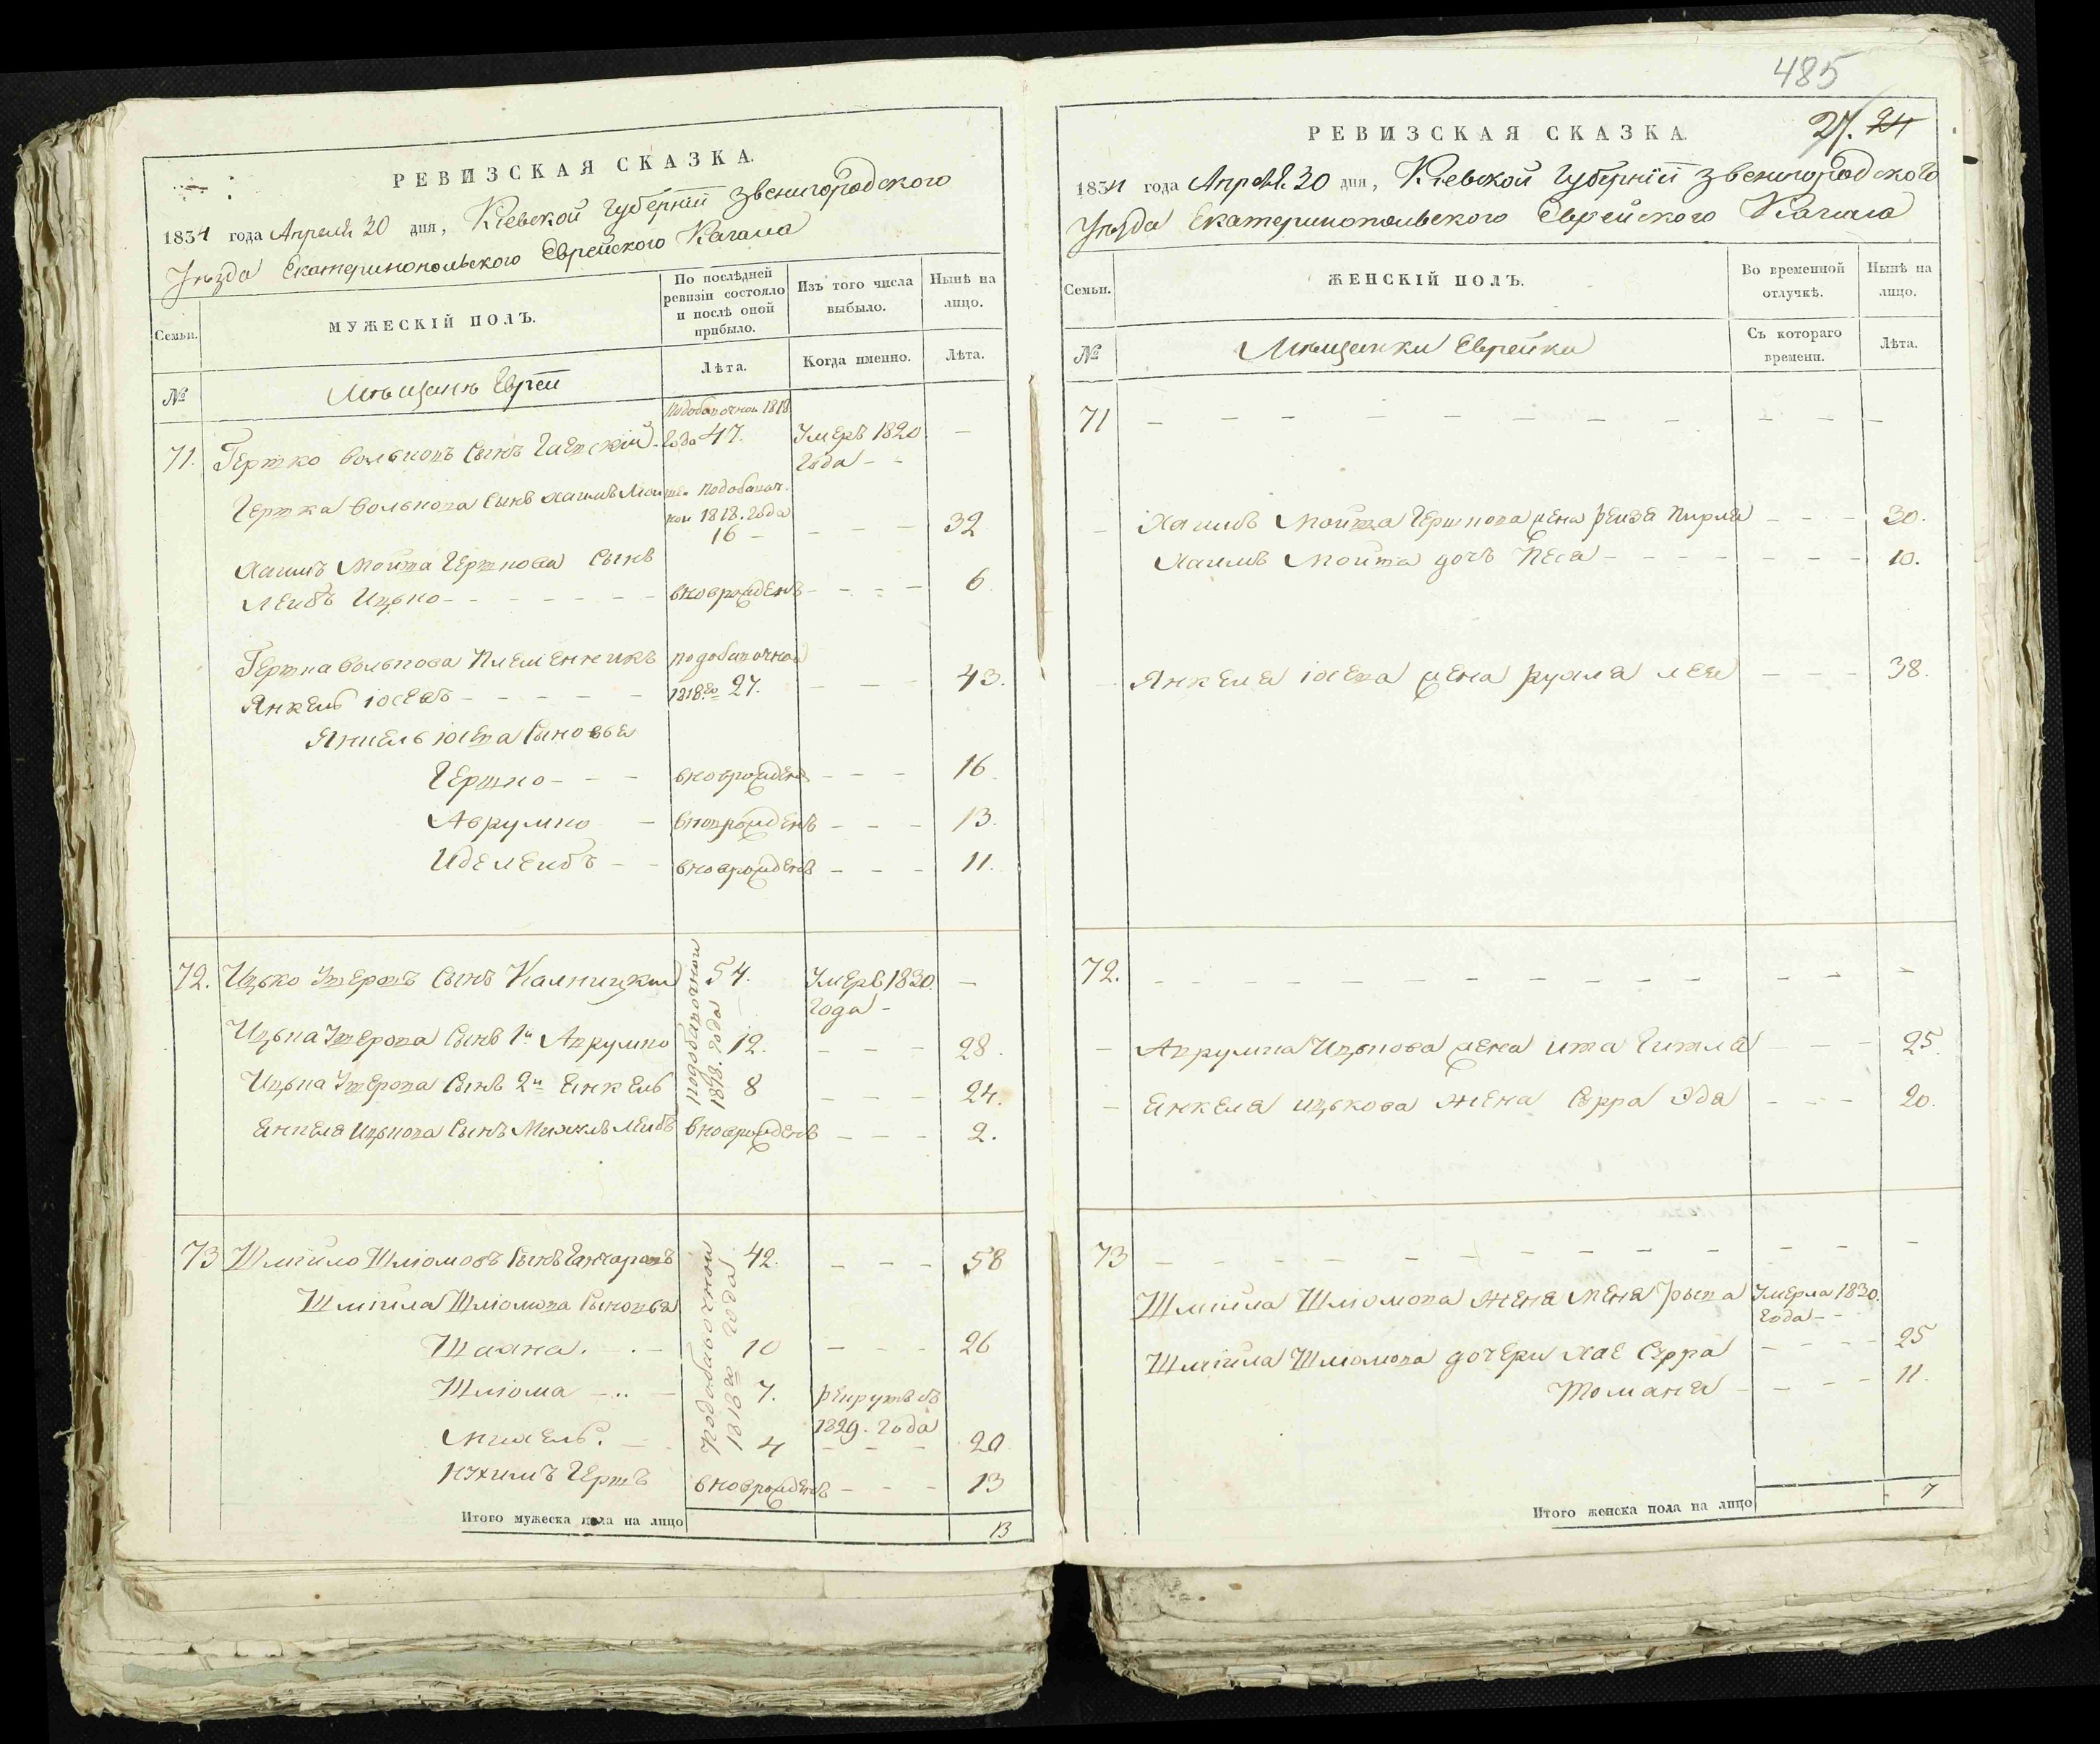 РЕВИЗСКАЯ СКАЗКА.
1834 года Апреля 30 дня, Киевской Губернiи Звенигородского
Уѣзда Екатеринопольского Еврейского Кагала
Семьи.
МУЖЕСКIЙ ПОЛЪ.
По послѣдней ревизiи состояло и послѣ оной прибыло.
Изъ того числа выбыло.
Нынѣ на лицо.
№
Мѣщанѣ Евреи
Лѣта.
Когда именно.
Лѣта.
71. Гершко Вольковъ Сынъ подобавочной 1818 года 47. Умеръ 1820 года - - —
Гершка Волькова Сынъ Хаимъ Мошко подобавоч.
ной 1818. года 16 - - - - 32
Хаимъ Мошка Гершкова Сынъ
Лейбъ Ицько - - - - вновърожденъ - - - - 6
Гершка Волькова Племенникъ подобавочной
Янкель Iосевъ - - - - 1818.го 27. - - - 43.
Янкель Iосева Сыновья
Гершко - - - вноврожденъ - - - 16
Аврумко - вноврожденъ - - - 13.
Иделейбъ - - вноврожденъ - - - 11.
72. Ицько Сынъ Калницкий подобавочной 1818. года 54. Умеръ 1830. года - —
Ицька Сынъ 1й Аврумко 12. - - - 28.
Ицька Сынъ 2й Янкель 8 - - - 24.
Янкеля Ицькова Сынъ Михель Лейбъ вноврожденъ - - - 2.
73 Шмiило Шлiомовъ Сынъ Ганчаровъ подобавочной 1818го года 42. - - - 58
Шмiила Шлiомова Сыновья
Шаяна. - . - 10 - - - 26
Шлiома - .. - 7. рекрутъ въ 1829. года
Михель. - 4 - - - 20
Нухимъ Гершъ вноврожденъ - - - 13
Итого мужеска пола на лицо 13
485
27. 24
РЕВИЗСКАЯ СКАЗКА.
1834 года Апреля 30 дня, Киевской Губернiи Звенигородского
Уѣзда Екатеринопольского Еврейского Кагала
Семьи.
ЖЕНСКIЙ ПОЛЪ.
Во временной отлучкѣ.
Нынѣ на лицо.
№
Мѣщанки Еврейки
Съ котораго времени.
Лѣта.
71 - - - - - - - - - - - -
- Хаимъ Мошка Гершкова жена Рейза Пирля - - - 30.
Хаимъ Мошка дочъ Песя - - - - - - - 10.
- Янкеля Iосева жена Рухля Лея - - - 38.
72. - - - - - - - - - - - -
- Аврумка Ицькова жена Ита Гитля - - - 25.
- Янкеля Ицькова жена Сурра Эда - - - 20.
73 - - - - - - - - - - - -
Шмiила Шлiомова жена Умерла 1830. года - -
Шмiила Шлiомова дочери Хае Сурра - - - - 25
- - - - 11.
Итого женска пола на лицо 7